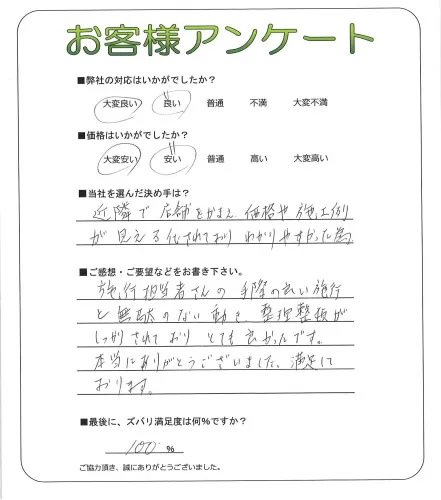 お客様アンケート
■弊社の対応はいかがでしたか?
大変良い 良い 普通 不満 大変不満
■価格はいかがでしたか?
大変安い 安い 普通 高い 大変高い
■当社を選んだ決め手は?
近隣で店舗をかまえ 価格や施工例
が見える化されており わかりやすかった為
■ご感想・ご要望などをお書き下さい。
施行担当者さんの手際の良い施行
と無駄のない動き、整理整頓が
しっかりされており とても良かったです。
本当にありがとうございました。満足して
おります。
■最後に、ズバリ満足度は何%ですか?
100 %
ご協力頂き、誠にありがとうございました。